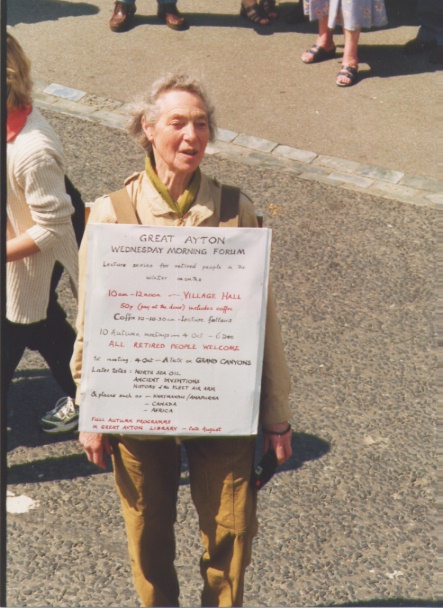 GREAT AYTON
WEDNESDAY MORNING FORUM
Lecture series for retired people in the
winter months
10 am - 12 noon — VILLAGE HALL
50p (pay at the door) includes coffee
Coffee 10-10.30 am - Lecture follows
10 Autumn meetings - 4 Oct - 6 Dec
ALL RETIRED PEOPLE WELCOME
1st meeting 4 Oct - A talk on GRAND CANYONS
Later talks: NORTH SEA OIL
ANCIENT INVENTIONS
HISTORY of the FLEET AIR ARM
& places such as -
- CANADA
- AFRICA
FULL AUTUMN PROGRAMME
in GREAT AYTON LIBRARY - late August